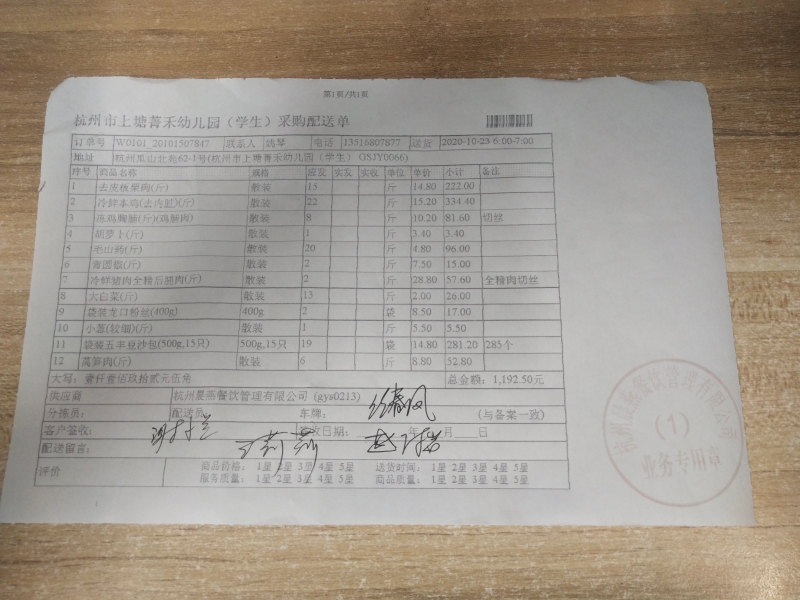 第1页/共1页
杭州市上塘菁禾幼儿园（学生）采购配送单
订单号 W0101_20101507847 联系人 姚琴 电话 13516807877 送货 2020-10-23 6:00-7:00
地址 杭州瓜山北苑62-1号(杭州市上塘菁禾幼儿园（学生）GSJY0066)
序号 商品名称 规格 应发 实发 实收 单位 单价 小计 备注
1 去皮板栗肉(斤) 散装 15 斤 14.80 222.00
2 冷鲜本鸡(去内脏)(斤) 散装 22 斤 15.20 334.40
3 冻鸡胸脯(斤)(鸡脯肉) 散装 8 斤 10.20 81.60 切丝
4 胡萝卜(斤) 散装 1 斤 3.40 3.40
5 毛山药(斤) 散装 20 斤 4.80 96.00
6 青圆椒(斤) 散装 2 斤 7.50 15.00
7 冷鲜猪肉全精后腿肉(斤) 散装 2 斤 28.80 57.60 全精肉切丝
8 大白菜(斤) 散装 13 斤 2.00 26.00
9 袋装龙口粉丝(400g) 400g 2 袋 8.50 17.00
10 小葱(较细)(斤) 散装 1 斤 5.50 5.50
11 袋装五丰豆沙包(500g,15只) 500g,15只 19 袋 14.80 281.20 285个
12 莴笋肉(斤) 散装 6 斤 8.80 52.80
大写：壹仟壹佰玖拾贰元伍角 总金额：1,192.50元
供应商 杭州晨燕餐饮管理有限公司 (gys0213)
分拣员： 配送员 车牌： (与备案一致)
客户签收： 签收日期： 年 月 日
配送留言：
评价 商品价格： 1星 2星 3星 4星 5星 送货时间： 1星 2星 3星 4星 5星
服务质量： 1星 2星 3星 4星 5星 商品质量： 1星 2星 3星 4星 5星
杭州晨燕餐饮管理有限公司
（1）
业务专用章